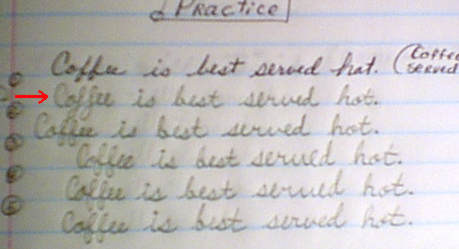 Practice
Coffee is best served hot. (Coffee
served
Coffee is best served hot.
Coffee is best served hot.
Coffee is best served hot.
Coffee is best served hot.
Coffee is best served hot.